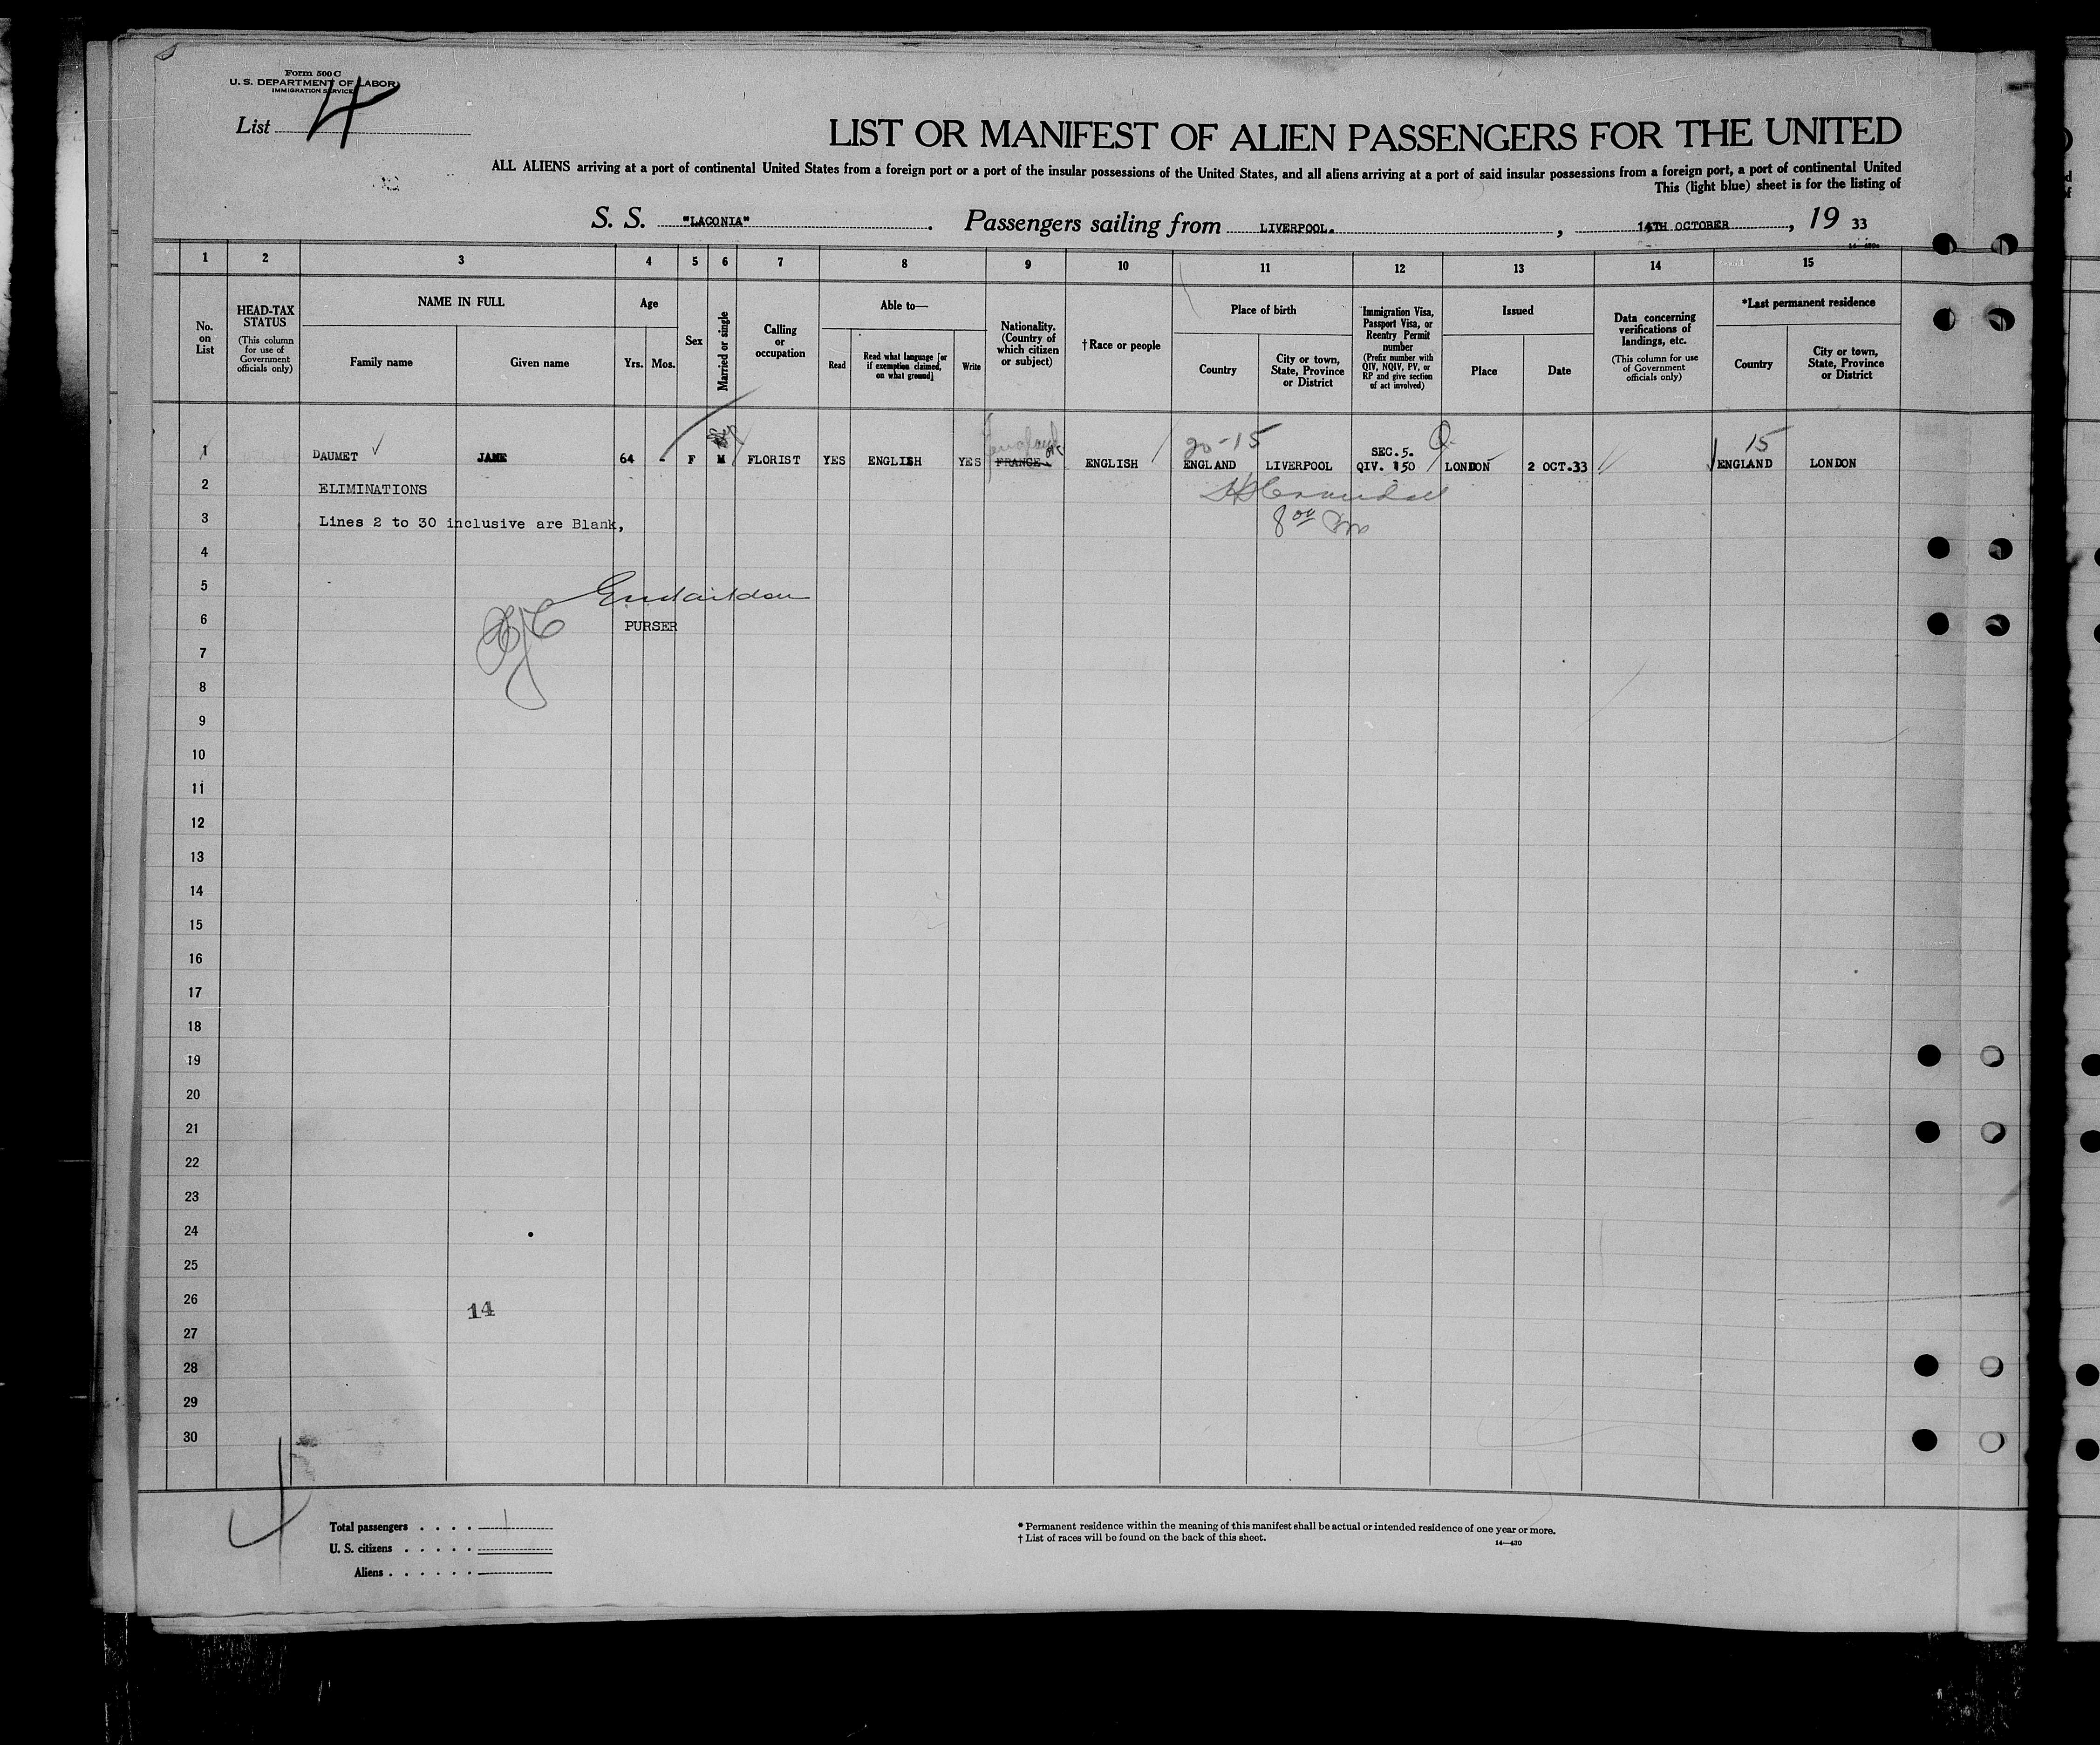 Form 500 C
U. S. DEPARTMENT OF LABOR
IMMIGRATION SERVICE
List 4
LIST OR MANIFEST OF ALIEN PASSENGERS FOR THE UNITED
ALL ALIENS arriving at a port of continental United States from a foreign port or a port of the insular possessions of the United States, and all aliens arriving at a port of said insular possessions from a foreign port, a port of continental United
This (light blue) sheet is for the listing of
S. S. "LACONIA". Passengers sailing from LIVERPOOL. , 14TH OCTOBER , 19 33
1 2 3 4 5 6 7 8 9 10 11 12 13 14 15
No. on List
HEAD-TAX STATUS
(This column for use of Government officials only)
NAME IN FULL
Family name Given name
Age
Yrs. Mos.
Sex
Married or single
Calling or occupation
Able to—
Read
Read what language [or if exemption claimed, on what ground]
Write
Nationality. (Country of which citizen or subject)
† Race or people
Place of birth
Country
City or town, State, Province or District
Immigration Visa, Passport Visa, or Reentry Permit number
(Prefix number with QIV, NQIV, PV, or RP and give section of act involved)
Issued
Place Date
Data concerning verifications of landings, etc.
(This column for use of Government officials only)
*Last permanent residence
Country
City or town, State, Province or District
20-15 SEC. 5. Q. 15
1 DAUMET JANE 64 - F M FLORIST YES ENGLISH YES England FRANCE ENGLISH ENGLAND LIVERPOOL QIV. 150 LONDON 2 OCT.33 ENGLAND LONDON
2 ELIMINATIONS
3 Lines 2 to 30 inclusive are Blank,
8 00
4
5
6 PURSER
7
8
9
10
11
12
13
14
15
16
17
18
19
20
21
22
23
24
25
26 14
27
28
29
30
Total passengers . . . . 1
U. S. citizens . . . . .
Aliens . . . . . .
* Permanent residence within the meaning of this manifest shall be actual or intended residence of one year or more.
† List of races will be found on the back of this sheet.
14—430